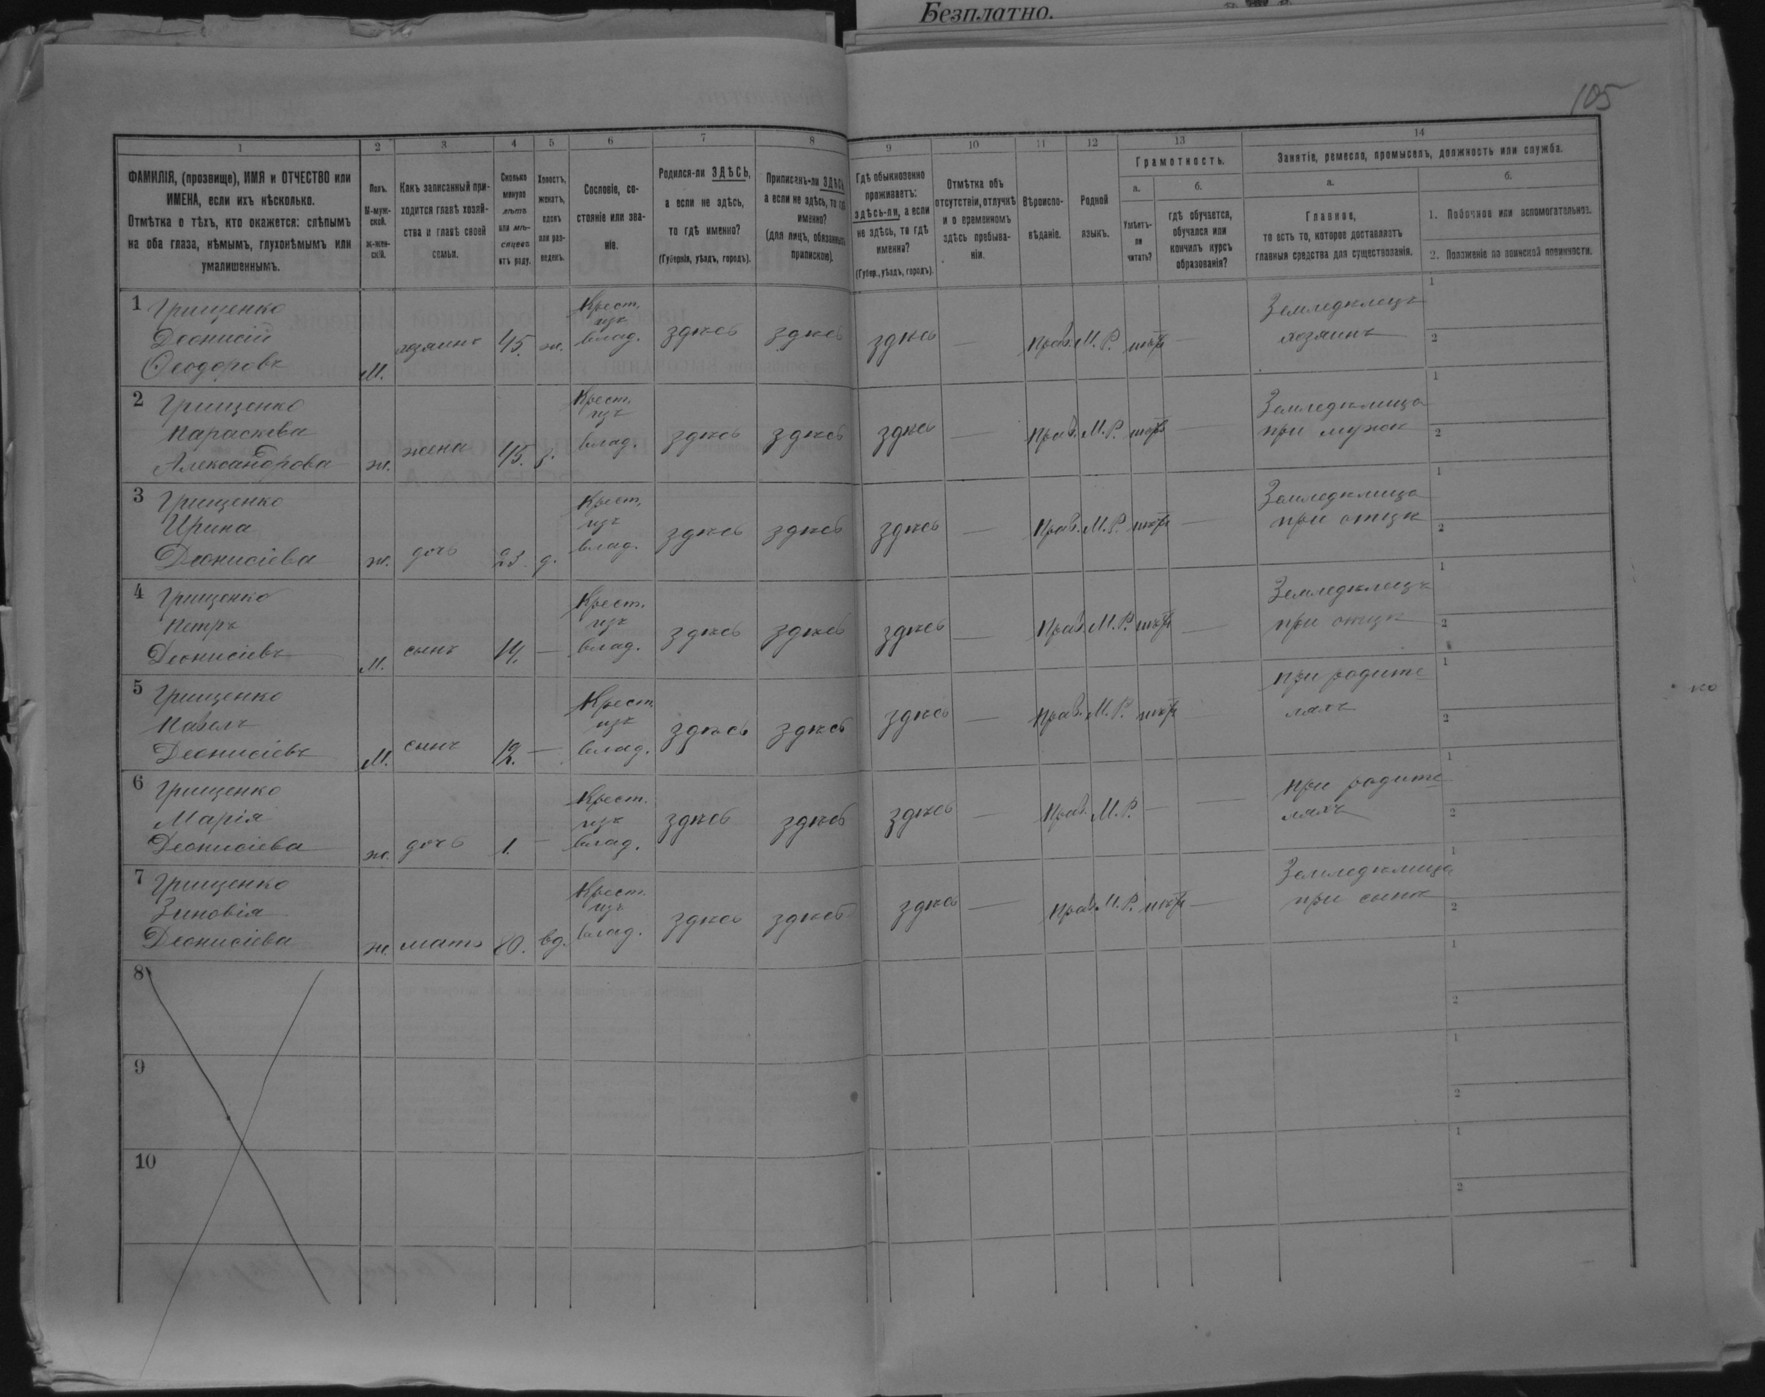 Безплатно.
105
1
2
3
4
5
6
7
8
9
10
11
12
13
14
ФАМИЛІЯ, (прозвище), ИМЯ и ОТЧЕСТВО или
ИМЕНА, если ихъ нѣсколько.
Отмѣтка о тѣхъ, кто окажется: слѣпымъ
на оба глаза, нѣмымъ, глухонѣмымъ или
умалишеннымъ.
Полъ.
М-муж-
ской.
ж-жен-
скій.
Какъ записанный при-
ходится главѣ хозяй-
ства и главѣ своей
семьи.
Сколько
минуло
лѣтъ
или мѣ-
сяцевъ
отъ роду.
Холостъ,
женатъ,
вдовъ
или раз-
веденъ.
Сословіе, со-
стояніе или зва-
ніе.
Родился-ли ЗДѢСЬ,
а если не здѣсь,
то гдѣ именно?
(Губернія, уѣздъ, городъ).
Приписанъ-ли ЗДѢСЬ,
а если не здѣсь, то гдѣ
именно?
(для лицъ, обязанныхъ
припиской).
Гдѣ обыкновенно
проживаетъ:
ЗДѢСЬ-ли, а если
не здѣсь, то гдѣ
именно?
(Губер., уѣздъ, городъ).
Отмѣтка объ
отсутствіи, отлучкѣ
и о временномъ
здѣсь пребыва-
ніи.
Вѣроиспо-
вѣданіе.
Родной
языкъ.
Грамотность.
а.
Умѣетъ-
ли
читать?
б.
гдѣ обучается,
обучался или
кончилъ курсъ
образованія?
Занятіе, ремесло, промыселъ, должность или служба.
а.
Главное,
то есть то, которое доставляетъ
главныя средства для существованія.
б.
1. Побочное или вспомогательное.
2. Положеніе по воинской повинности.
1 Грищенко
Діонисій
Ѳеодоровъ
М. хозяинъ 45. ж.
Крест.
изъ
влад.
здѣсь здѣсь здѣсь — Прав. М. Р. —
Земледѣлецъ
хозяинъ
1
2
2 Грищенко
Параскева
Александрова
ж. жена 45. з.
Крест.
изъ
влад.
здѣсь здѣсь здѣсь — Прав. М. Р. —
Земледѣлица
при мужѣ
1
2
3 Грищенко
Ирина
Діонисіева
ж. дочь 23. д.
Крест.
изъ
влад.
здѣсь здѣсь здѣсь — Прав. М. Р. —
Земледѣлица
при отцѣ
1
2
4 Грищенко
Петръ
Діонисіевъ
М. сынъ 14. —
Крест.
изъ
влад.
здѣсь здѣсь здѣсь — Прав. М. Р. —
Земледѣлецъ
при отцѣ
1
2
5 Грищенко
Павелъ
Діонисіевъ
М. сынъ 12. —
Крест.
изъ
влад.
здѣсь здѣсь здѣсь — Прав. М. Р. —
при родите
ляхъ
1
2
6 Грищенко
Марія
Діонисіева
ж. дочь 1. —
Крест.
изъ
влад.
здѣсь здѣсь здѣсь — Прав. М. Р. — —
при родите
ляхъ
1
2
7 Грищенко
Зиновія
Діонисіева
ж. мать 80. вд.
Крест.
изъ
влад.
здѣсь здѣсь здѣсь — Прав. М. Р. —
Земледѣлица
при сынѣ
1
2
8
1
2
9
1
2
10
1
2